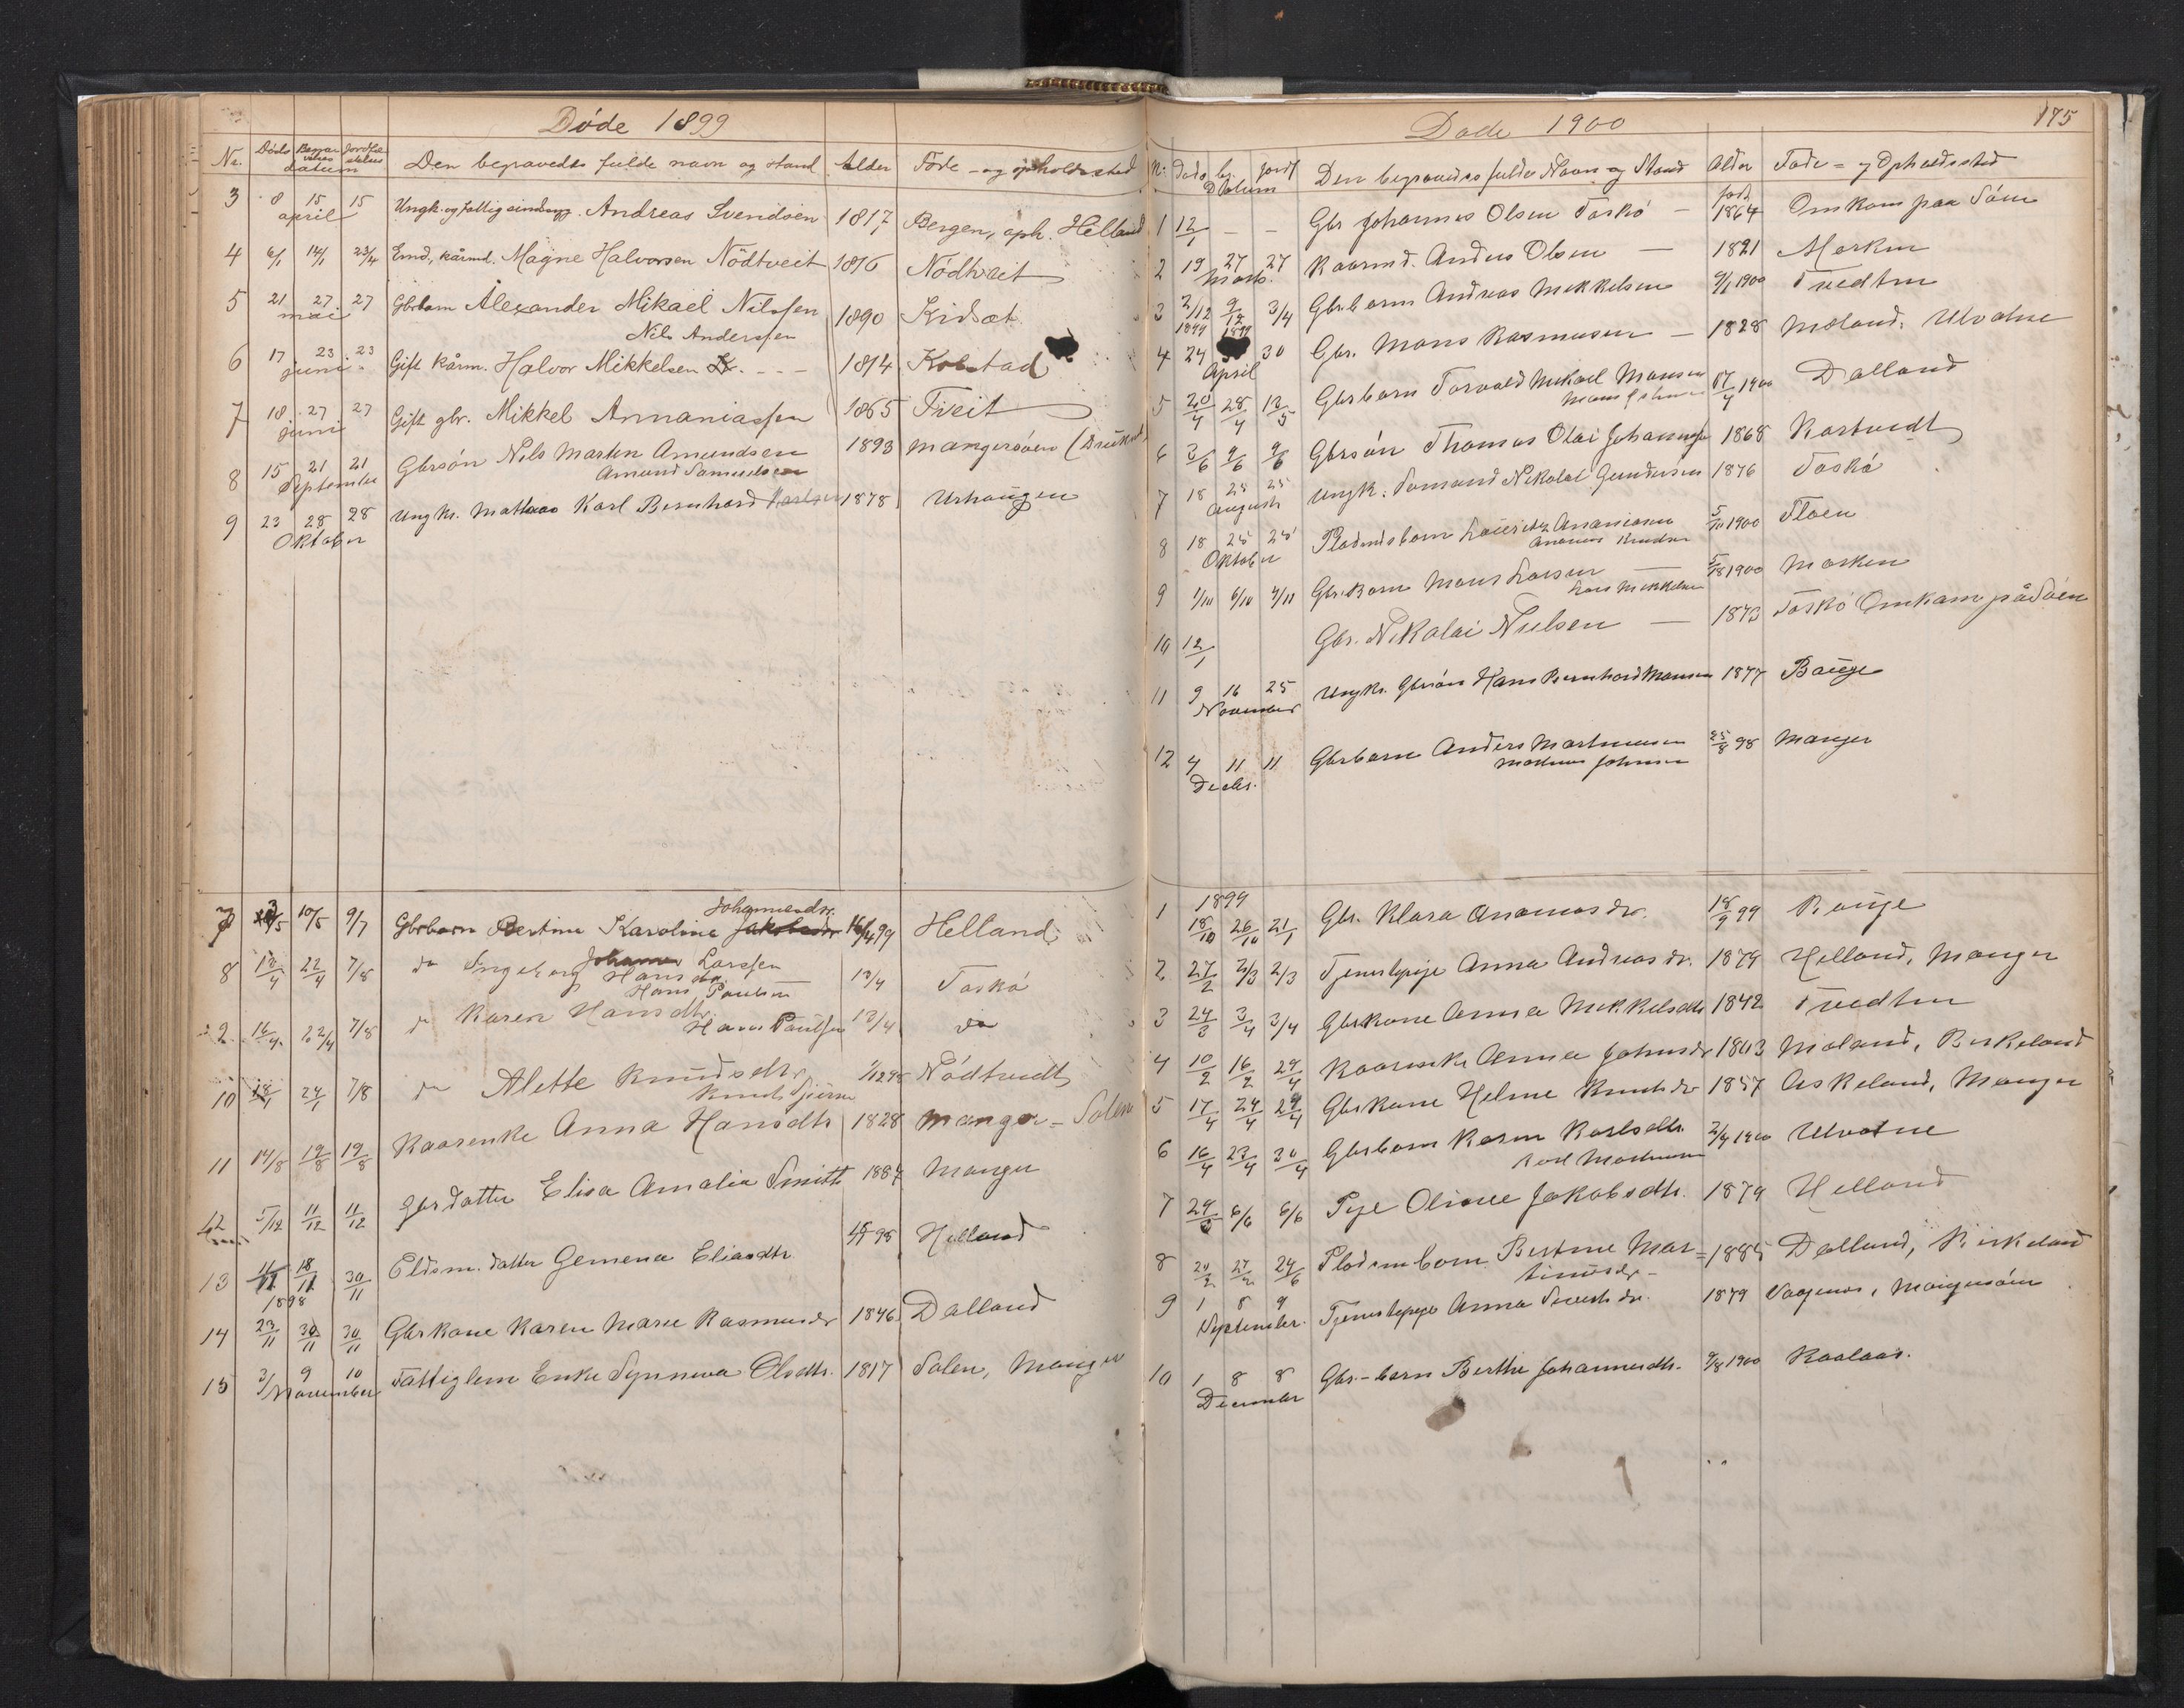 Döde 1899
Nr. Döds Begravelses Jordfæstelses datum Den begravedes fulde navn og stand Alder Föde - og opholdssted
3 8 15 15 april Ungk. og fattig Andreas Svendsen 1817 Bergen, oph. Helland
4 6/1 14/1 23/4 Emd, kårmd. Magne Halvorsen Nödtveit 1816 Nödtveit
5 21 27 27 mai Gbrbarn Alexander Mikael Nilssen 1890 Kidsæt
Nils Anderssen
6 17 23 23 juni Gift kårm. Halvor Mikkelsen 1814 Kolstad
7 18 27 27 juni Gift gbr. Mikkel Annaniassen 1865 Tveit
8 15 21 21 September Gbrsön Nils Martin Amundsen 1893 Mangersöen
Amund Samuelsen
9 23 28 28 Oktober Ungk. Matros Karl Bernhard 1878 Urhaugen
10/5 9/7 Gbrbarn Bertine Karoline Johannesdr. 16/4 99 Helland
8 22/4 7/8 do Ingeborg Hansdtr. 13/4 Toskö
Hans Paulsen
22/4 7/8 do Karen Hansdtr. 13/4 do
Hans Paulsen
10 24/1 7/8 do Alette Knudsdtr Nödtvedt
11 14/8 19/8 19/8 Kaarenke Anna Hansdtr 1828 Manger - Solen
12 5/12 11/12 11/12 Gbrdatter Elisa Amalia Smitt 1884 Manger
13 11/11 18/11 30/11 Eldsm. datter Gemena Eliasdtr. 98 Helland
1898
14 23/11 30/11 30/11 Gbrkone Karen Marie Rasmusdr 1846 Dalland
15 3/ 9 10 November Fattiglem Enke Synneva Olsdtr. 1817 Solen, Manger
Døde 1900
175
N: Døds beg. jordf Datum Den begravedes fulde Navn og Stand Alder Føde = og Opholdssted
1 12/1 - - Gbr Johannes Olsen Toskö - født 1864 Omkom paa Söen
2 19 27 27 Marts. Kaarmd. Anders Olsen - 1821 Marken
3 2/12 1899 9/12 1899 3/4 Gbrbarn Andreas Mikkelsen 9/1 1900 Tvedten
4 24 30 April Gbr. Mons Rasmussen - 1828 Mæland. Ulvatne
5 20/4 28/4 13/5 Gbrbarn Torvald Mikael Monsen 17/4 1900 Dalland
6 3/6 9/6 9/6 Gbrsön Thomas Olai Johannessen 1868 Kartvedt
7 18 25 25 August Ungk. Sømand Nikolai Gundersen 1876 Toskö
8 18 25 25 Oktober Pladsmdsbarn Lauritz Ananiasen 1900 Floen
Ananias Knudsen
9 1/10 6/10 4/11 Gbr. Barn Mons Larsen 1900 Marken
Lars Mikkelsen
10 12/1 Gbr. Nikolai Nielsen - 1873 Toskö Omkom på Söen
11 9 16 25 November Ungk. Gbrsön Hans Bernhard Monsen 1877 Bauge
12 4 11 11 Decbr. Gbrbarn Anders Martinusen 25/8 98 Manger
Martinus Johnsen
1899
1 18/10 26/10 21/1 Gbr. Klara Ananiasdr. 18/9 99 Bauge
2 27/2 2/3 2/3 Tjenestepige Anna Andreasdr. 1879 Helland, Manger
3 24/3 3/4 3/4 Gbrkone Anna Mikkelsdtr 1842 Tvedten
4 10/2 16/2 29/4 Kaarenke Anna Johnsdr 1803 Mæland, Birkeland
5 17/4 24/4 29/4 Gbrkone Helene Knutsdr 1857 Askeland, Manger
6 16/4 23/4 30/4 Gbrbarn Karen Karlsdtr. 2/4 1900 Ulvatne
Karl Martinusen
7 29/5 6/6 6/6 Pige Oline Jakobsdtr. 1879 Helland
8 20/2 27/2 24/6 Pladsmbarn Bertine Mar = 1885 Dalland, Birkeland
tinusdr -
9 1 8 9 September. Tjenestepige Anna Sivertsdr. 1879 Vaagenes, Mangersöen
10 1 8 8 December Gbr. - barn Berthe Johannesdtr. 9/8 1900 Kaalaas.